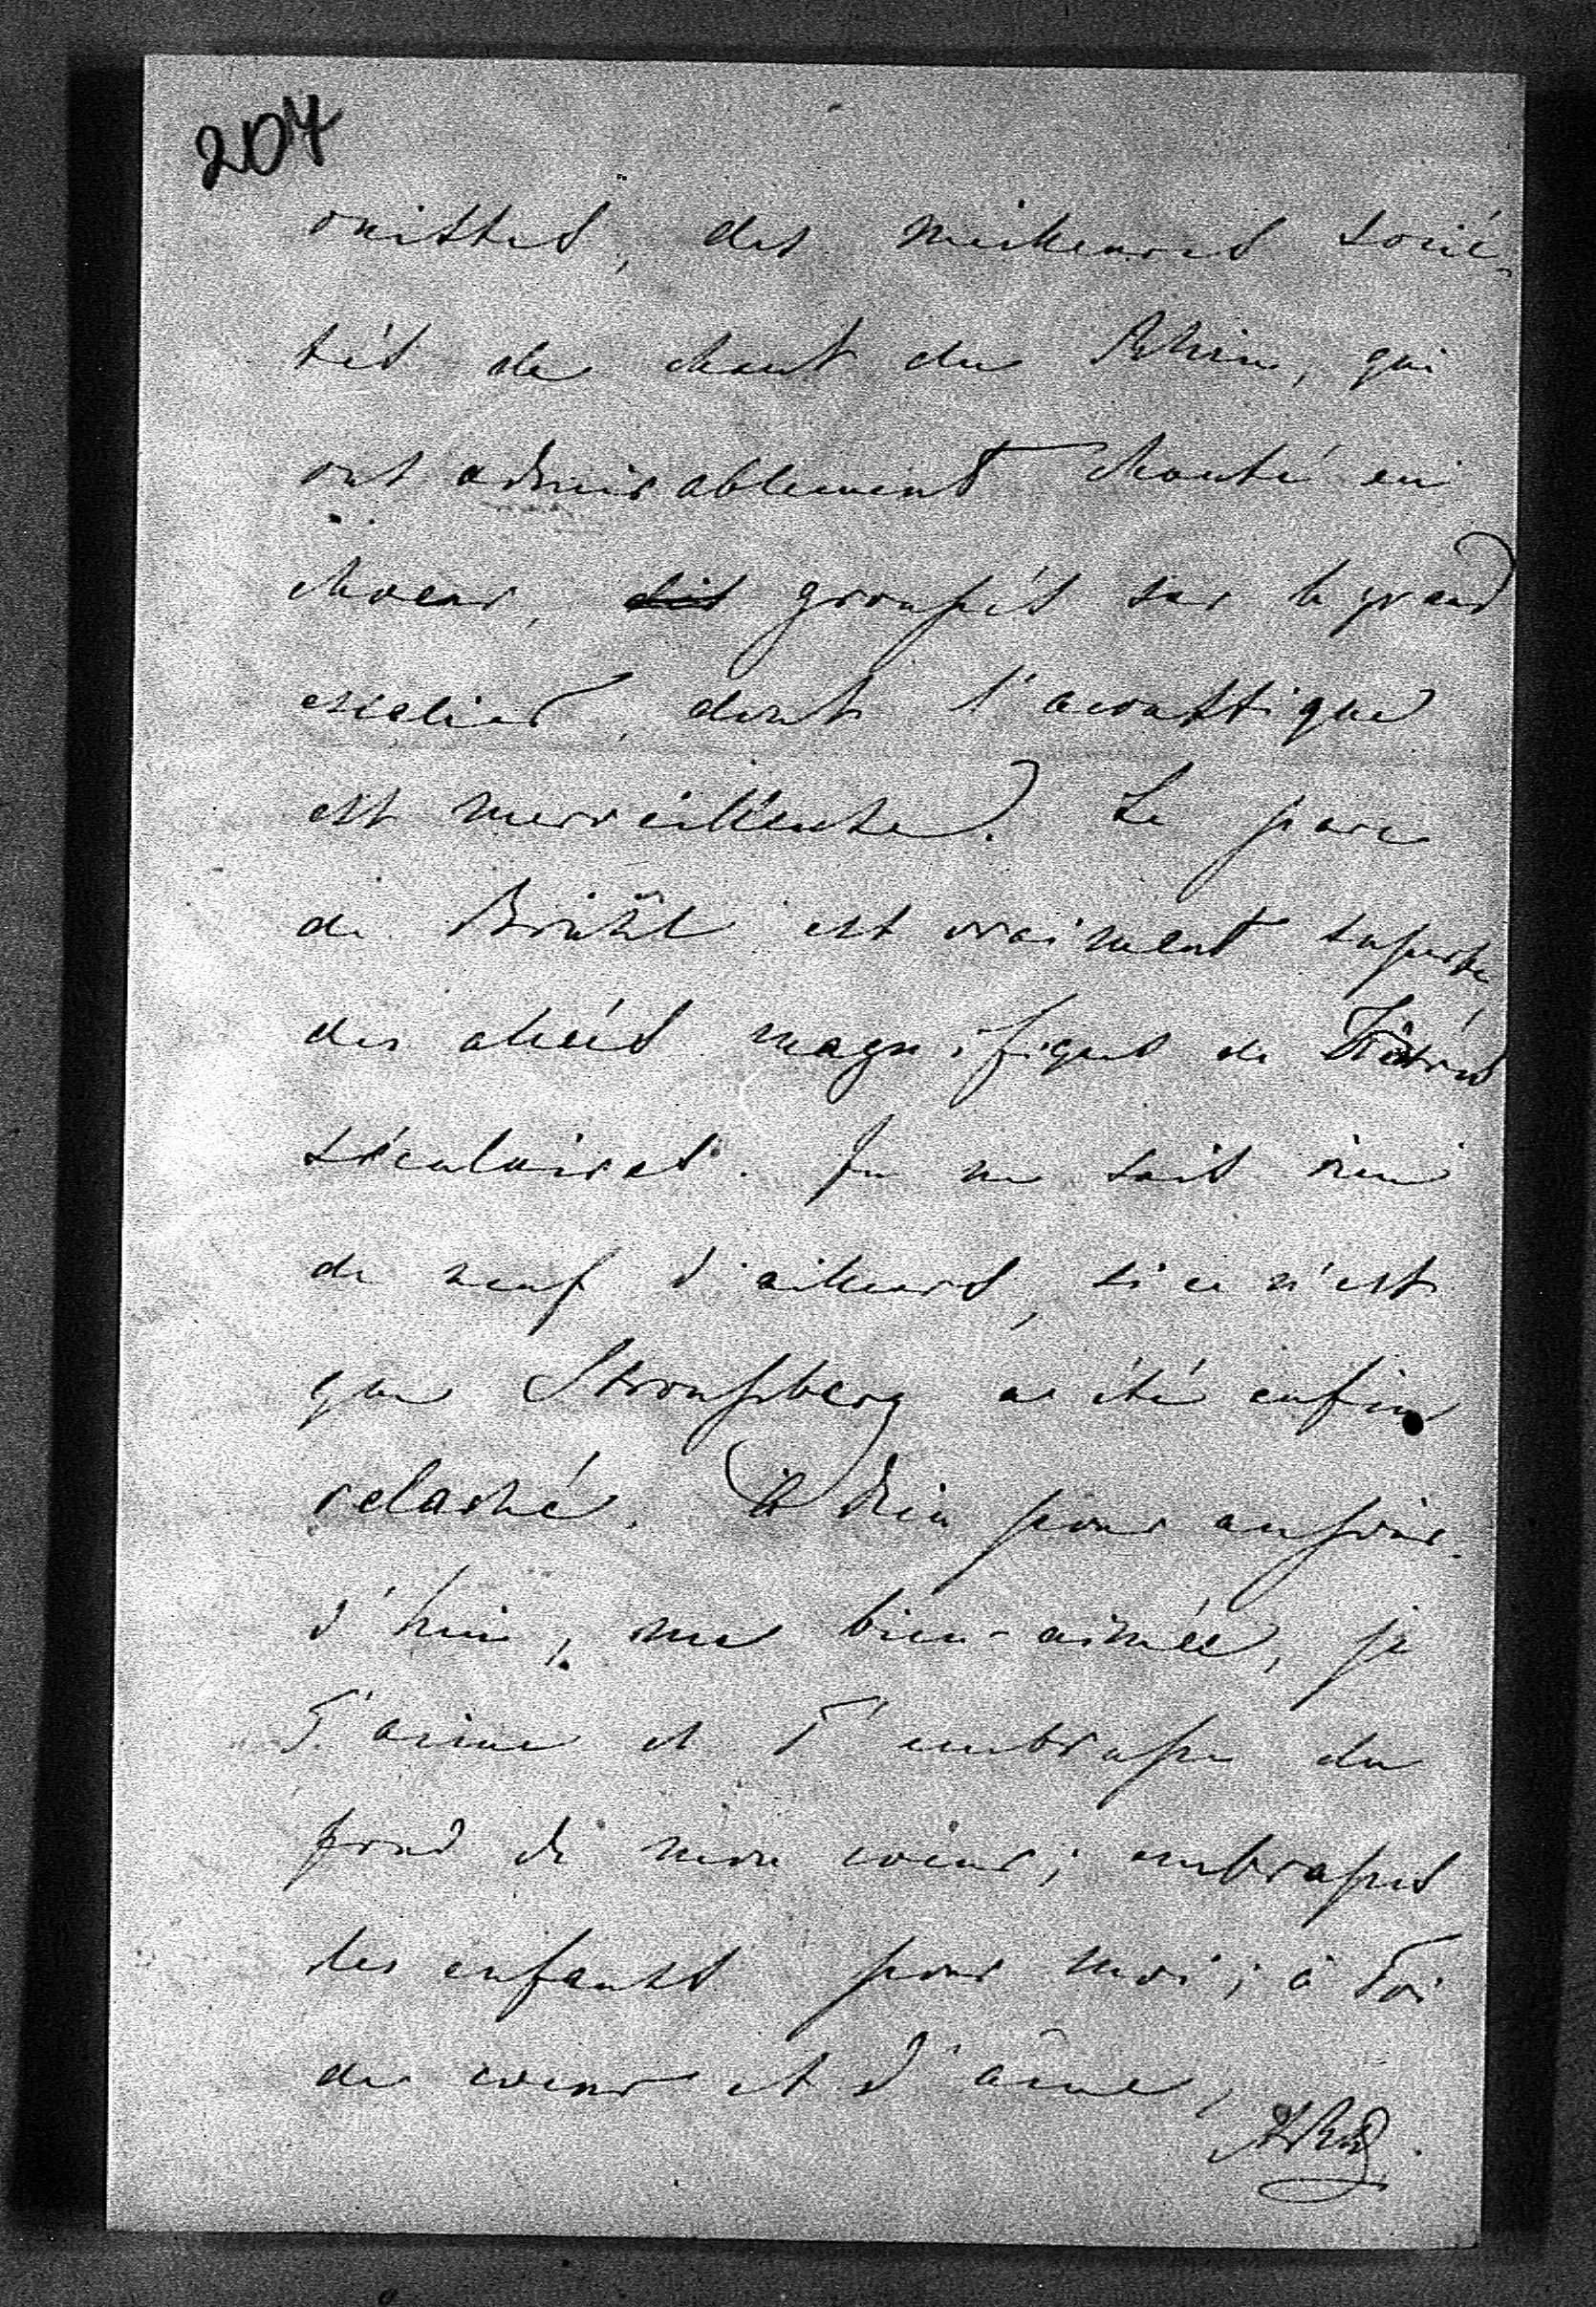 207
onistes, des meilleures socié-
tés de chant du Rhin, qui
ont admirablement chanté en
choeur, groupés sur le grand
escalier, dont l'acoustique
est merveilleuse. Le parc
de Brühl est vraiment superbe,
des allées magnifiques de hêtres
séculaires. Je ne sais rien
de neuf d'ailleurs, si ce n'est
que Strousberg a été enfin
relaché. Adieu pour aujour-
d'hui, ma bien-aimée, je
T'aime et T'embrasse du
fond de mon coeur; embrasses
les enfants pour moi; à Toi
de coeur et d'âme,